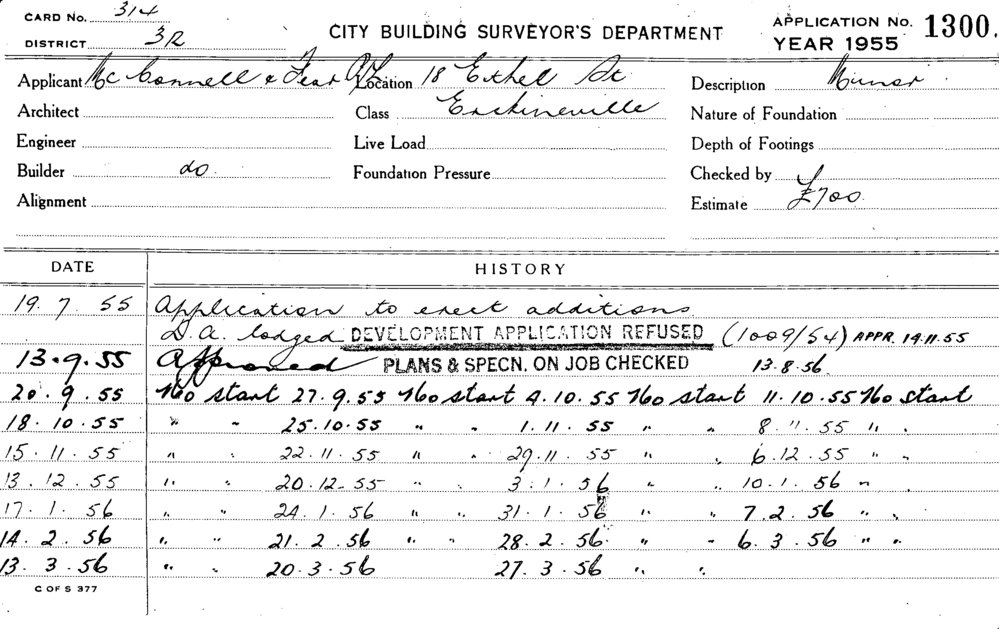 CARD No. 314
DISTRICT 3R
CITY BUILDING SURVEYOR'S DEPARTMENT
APPLICATION No. 1300.
YEAR 1955
Applicant McConnell & Fear P/L Location 18 Ethel St Description Minor
Architect Class Erskineville Nature of Foundation
Engineer Live Load Depth of Footings
Builder do. Foundation Pressure Checked by
Alignment Estimate £700
DATE HISTORY
19. 7. 55 Application to erect additions
D.A. lodged DEVELOPMENT APPLICATION REFUSED (1009/54) APPR. 19.11.55
13.9.55 Approved PLANS & SPECN. ON JOB CHECKED 13.8.56.
20.9.55 No start 27.9.55 No start 4.10.55 No start 11.10.55 No start
18.10.55 " " 25.10.55 " " 1.11.55 " " 8.11.55 " "
15.11.55 " " 22.11.55 " " 29.11.55 " " 6.12.55 " "
13.12.55 " " 20.12.55 " " 3.1.56 " " 10.1.56 " "
17.1.56 " " 24.1.56 " " 31.1.56 " " 7.2.56 " "
14.2.56 " " 21.2.56 " " 28.2.56 " " 6.3.56 " "
13.3.56 " " 20.3.56 27.3.56 " "
C OF S 377